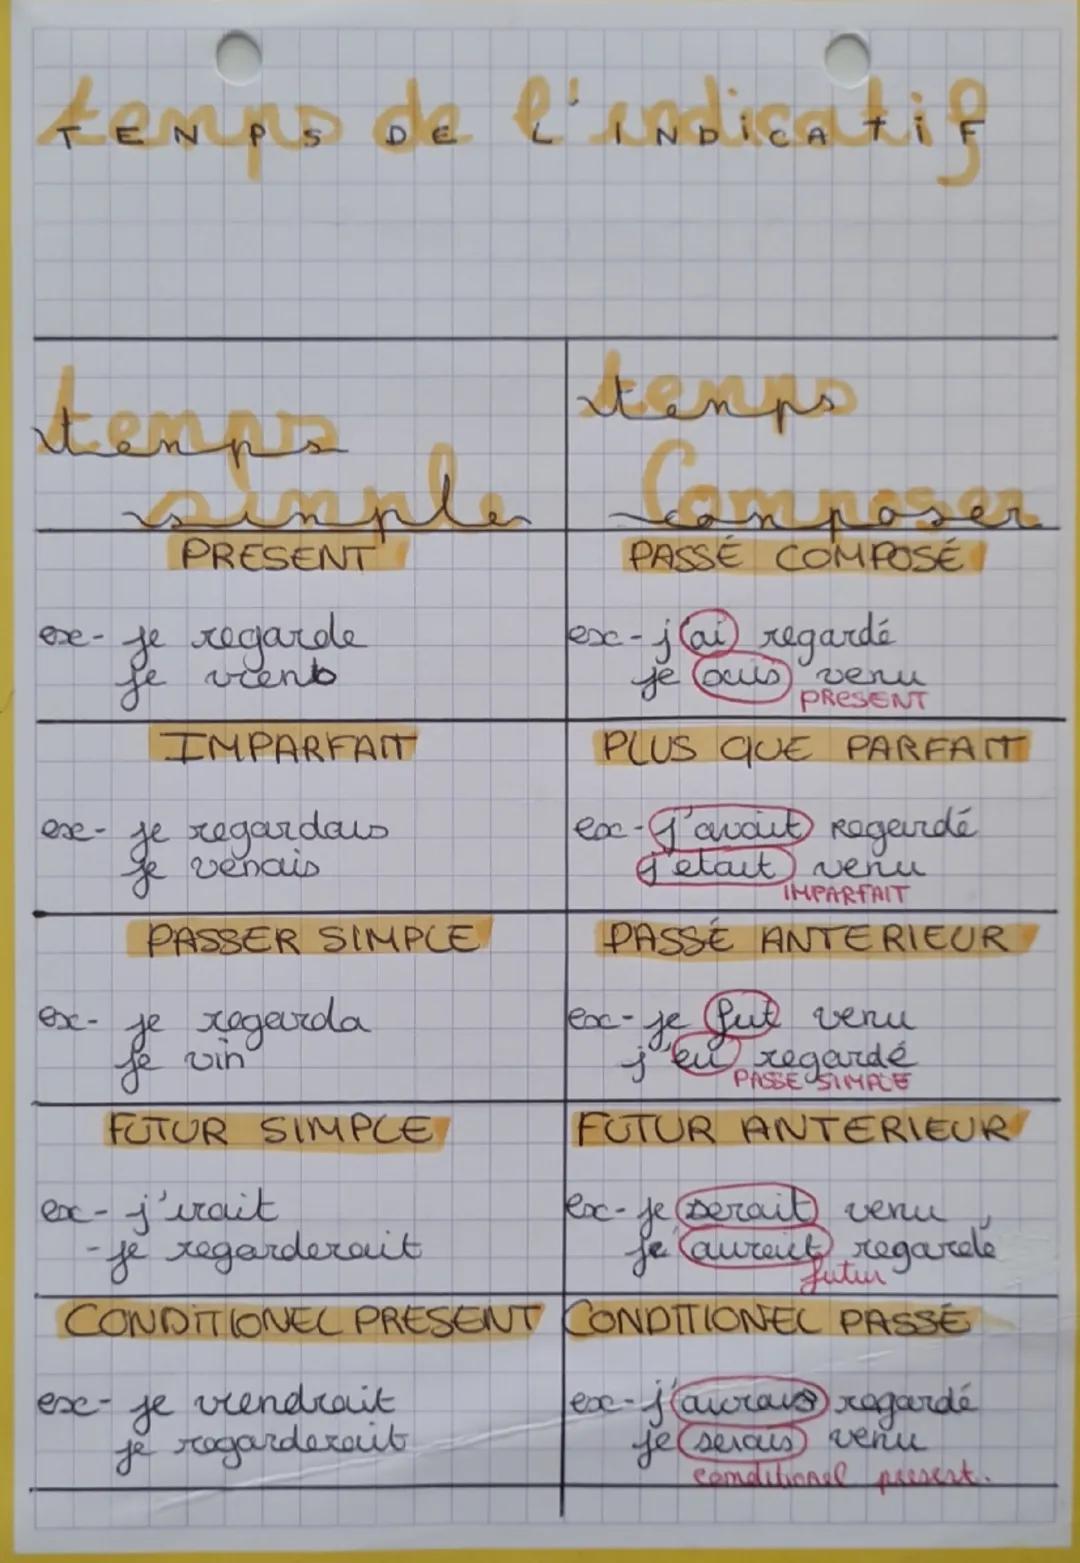 temps de l'indicatif
TENPS DE L'INDICATIF
temps
simple
temps
composer
PRESENT
ex- je regarde
je viens
PASSÉ COMPOSÉ
ex- j'ai regardé
je suis venu
PRESENT
IMPARFAIT
ex- je regardais
je venais
PLUS QUE PARFAIT
ex- j'avait regardé
j'etait venu
IMPARFAIT
PASSER SIMPLE
ex- je regarda
je vin
PASSÉ ANTERIEUR
ex- je fut venu
j'eu regardé
PASSE SIMPLE
FUTUR SIMPLE
ex- j'irait
- je regarderait
FUTUR ANTERIEUR
ex- je serait venu
je aurait regardé
futur
CONDITIONEL PRESENT
ex- je viendrait
je regarderait
CONDITIONEL PASSÉ
ex- j'aurais regardé
je serais venu
conditionel present.